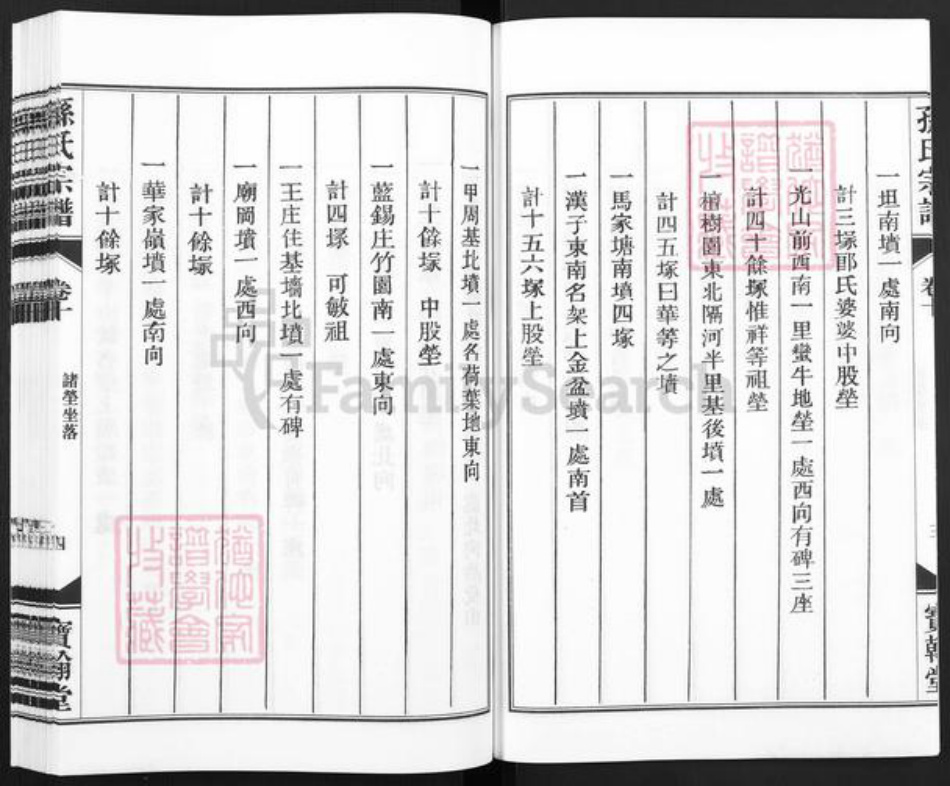 孫氏宗譜
卷十
三
寶翰堂
一坦南墳一處南向
計三塜郎氏婆婆中股塋
一光山前西南一里蠻牛地塋一處西向有碑三座
計四十餘塜惟祥等祖塋
一檀樹園東北隔河半里基後墳一處
計四五塜曰華等之墳
一馬家塘南墳四塜
一漢子東南名架上金盆墳一處南首
計十五六塜上股塋
一甲周基北墳一處名荷葉地東向
計十餘塜 中股塋
一藍錫庄竹園南一處東向
計四塜 可敏祖
一王庄住基墻北墳一處有碑
一廟岡墳一處西向
計十餘塜
一華家嶺墳一處南向
計十餘塜
孫氏宗譜
卷十
諸塋坐落
四
寶翰堂
譜學會
收藏
FamilySearch